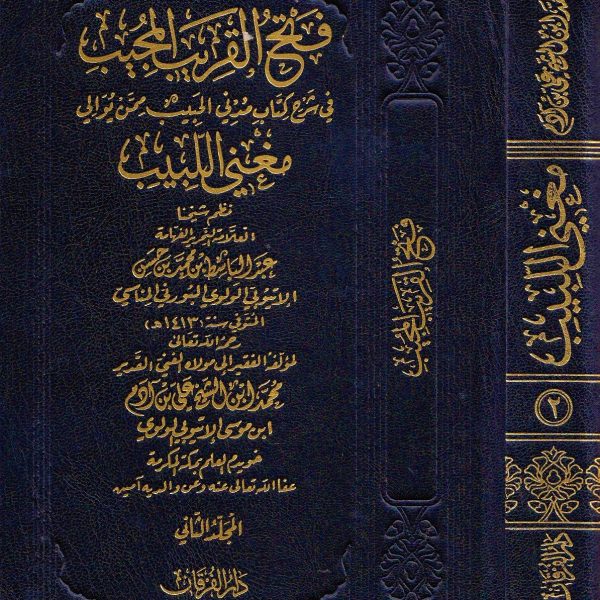 فتح القريب المجيب
في شرح كتاب مدني الحبيب ممن يوالي
مغني اللبيب
نظم شيخنا
العلامة النحرير الفهامة
عبد الباسط ابن محمد بن حسن
الإتيوبي الولوي البورني المناسي
المتوفى سنة (١٤١٣هـ)
رحمه الله تعالى
لمؤلفه الفقير إلى مولاه الغني القدير
محمد ابن الشيخ علي بن آدم
ابن موسى الإتيوبي الولوي
خويدم العلم بمكة المكرمة
عفا الله تعالى عنه وعن والديه آمين
المجلد الثاني
دار الفرقان
فتح القريب المجيب
محمد ابن الشيخ علي بن آدم
مغني اللبيب
٢
دار الفرقان